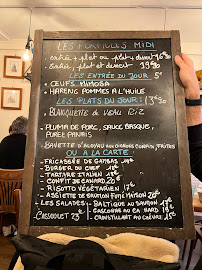 LES FORMULES MIDI
entrée + plat ou plat + dessert
entrée plat et dessert 19
LES ENTRÉE DU JOUR 5
OEUFS MIMOSA
HARENG POMMES A L'HUILE
LES PLATS DU JOUR: 13
BLANQUETTE de VEAU RIZ
PLUMA DE PORC, SAUCE BASQUE,
PURÉE PANAIS
BAVETTE D'ALOYAU AUX OIGNONS CONFITS, FRITES
OU A LA CARTE
FRICASSÉE DE GAMBAS
BURGER DU CHEF
TARTARE ITALIEN
CONFIT DE CANARD
RISOTTO VÉGÉTARIEN
ASSIETTE DE SAUMON FUMÉ MAISON
LES SALADES: BALTIQUE AU SAUMON
GASCONNE AU CANARD
CROUSTILLANT AU CHÈVRE
CASSOULET